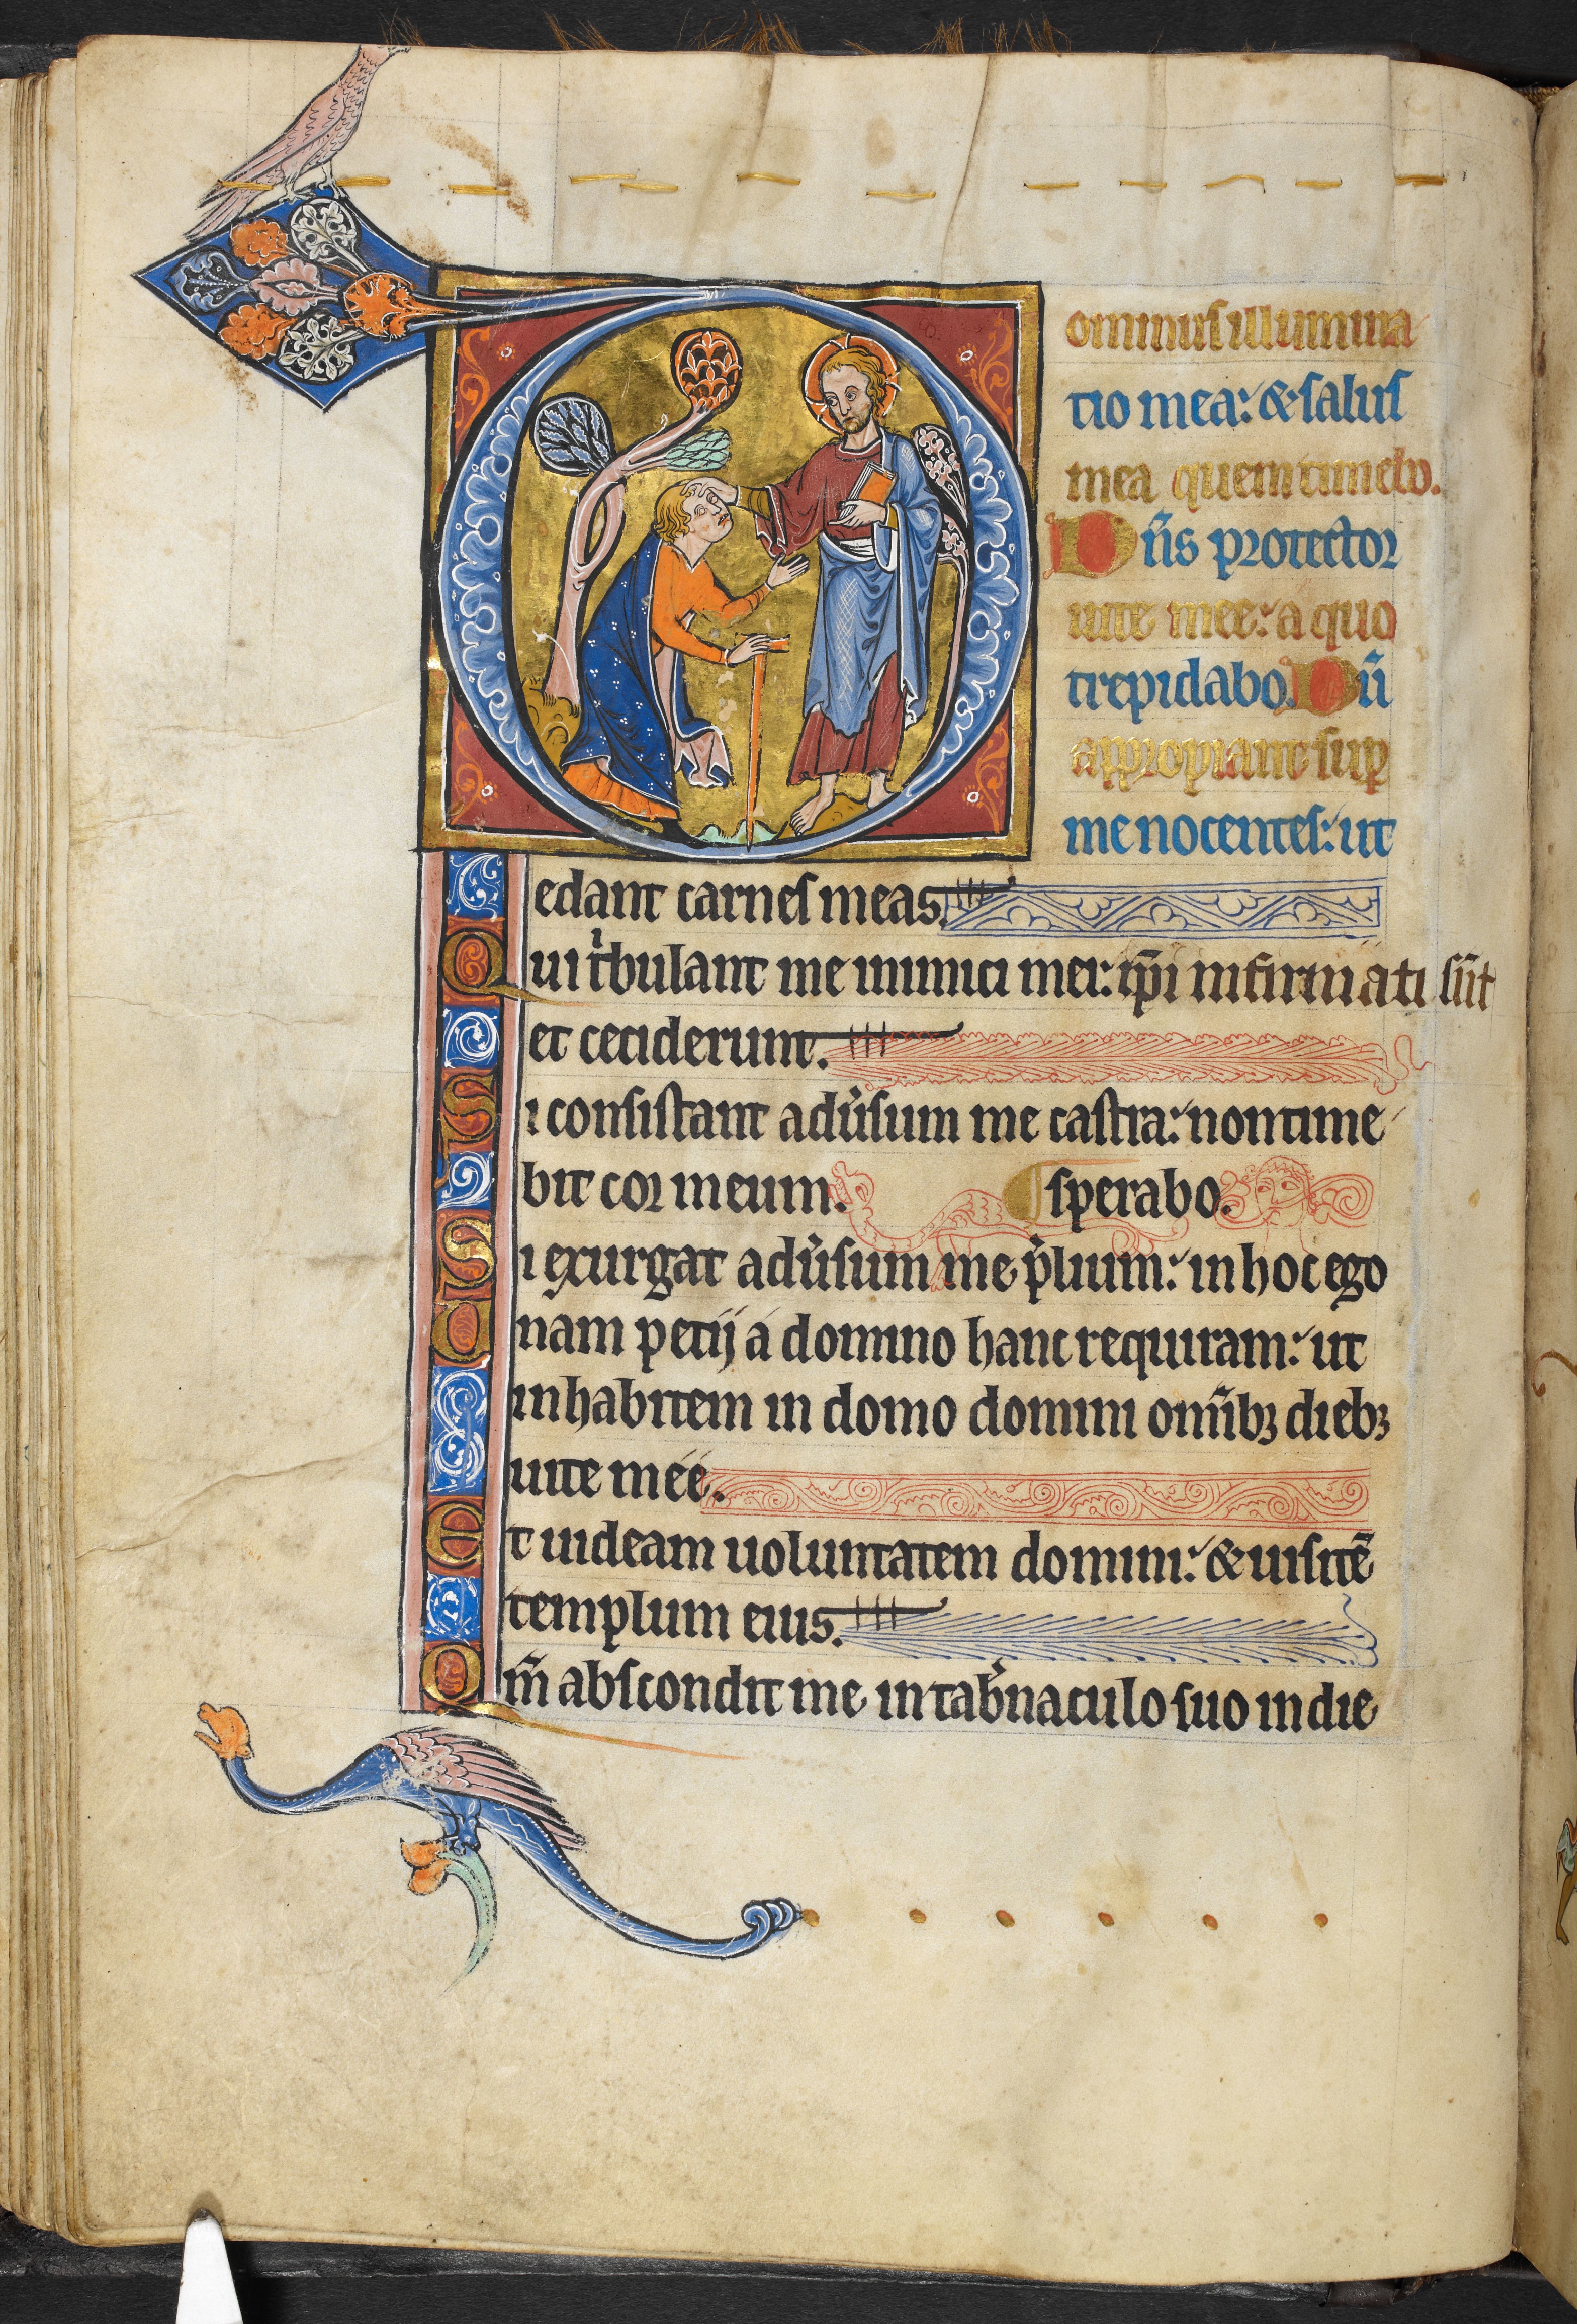 Dominus illumina
tio mea: & salus
mea quem timebo.
Dn̄s protector
uite mee: a quo
trepidabo. Dū
appropiant sup̱
me nocentes: ut
edant carnes meas.
Qui tⁱbulant me inimici mei: ip̄i infirmati sūt
et ceciderunt.
Si consistant adu̾sum me castra: non time
bit cor meum. ¶ sperabo.
Si exurgat adu̾sum me p̾lium: in hoc ego
Unam petij a domino hanc requiram: ut
inhabitem in domo domini omīb; dieb;
uite meé.
Et uideam uoluntatem domini: & uisitē
templum eius.
Qm̄ abscondit me in tab̾naculo suo in die